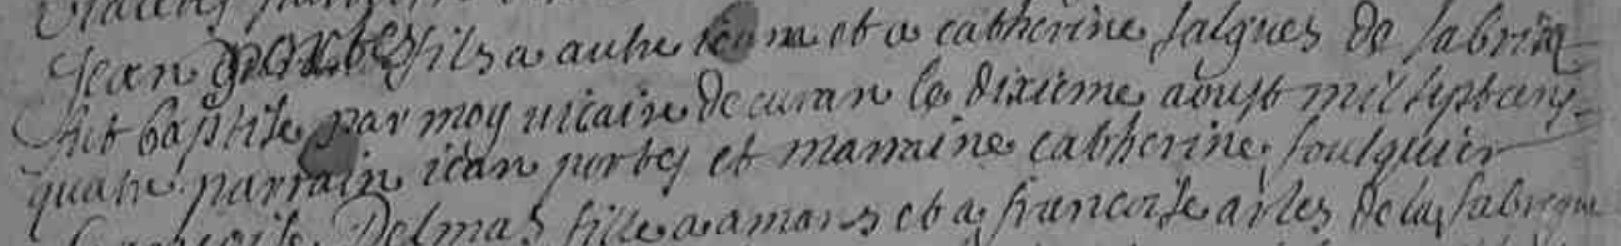 Jean portes fils a autre iean et a catherine salgues de fabrie
fut baptise par moy vicaire de curan le dixieme aoust mil sept cens
quatre parrain iean portes et marraine catherine foulquier
Delmas fille a amans et a francoise arles de la fabregue